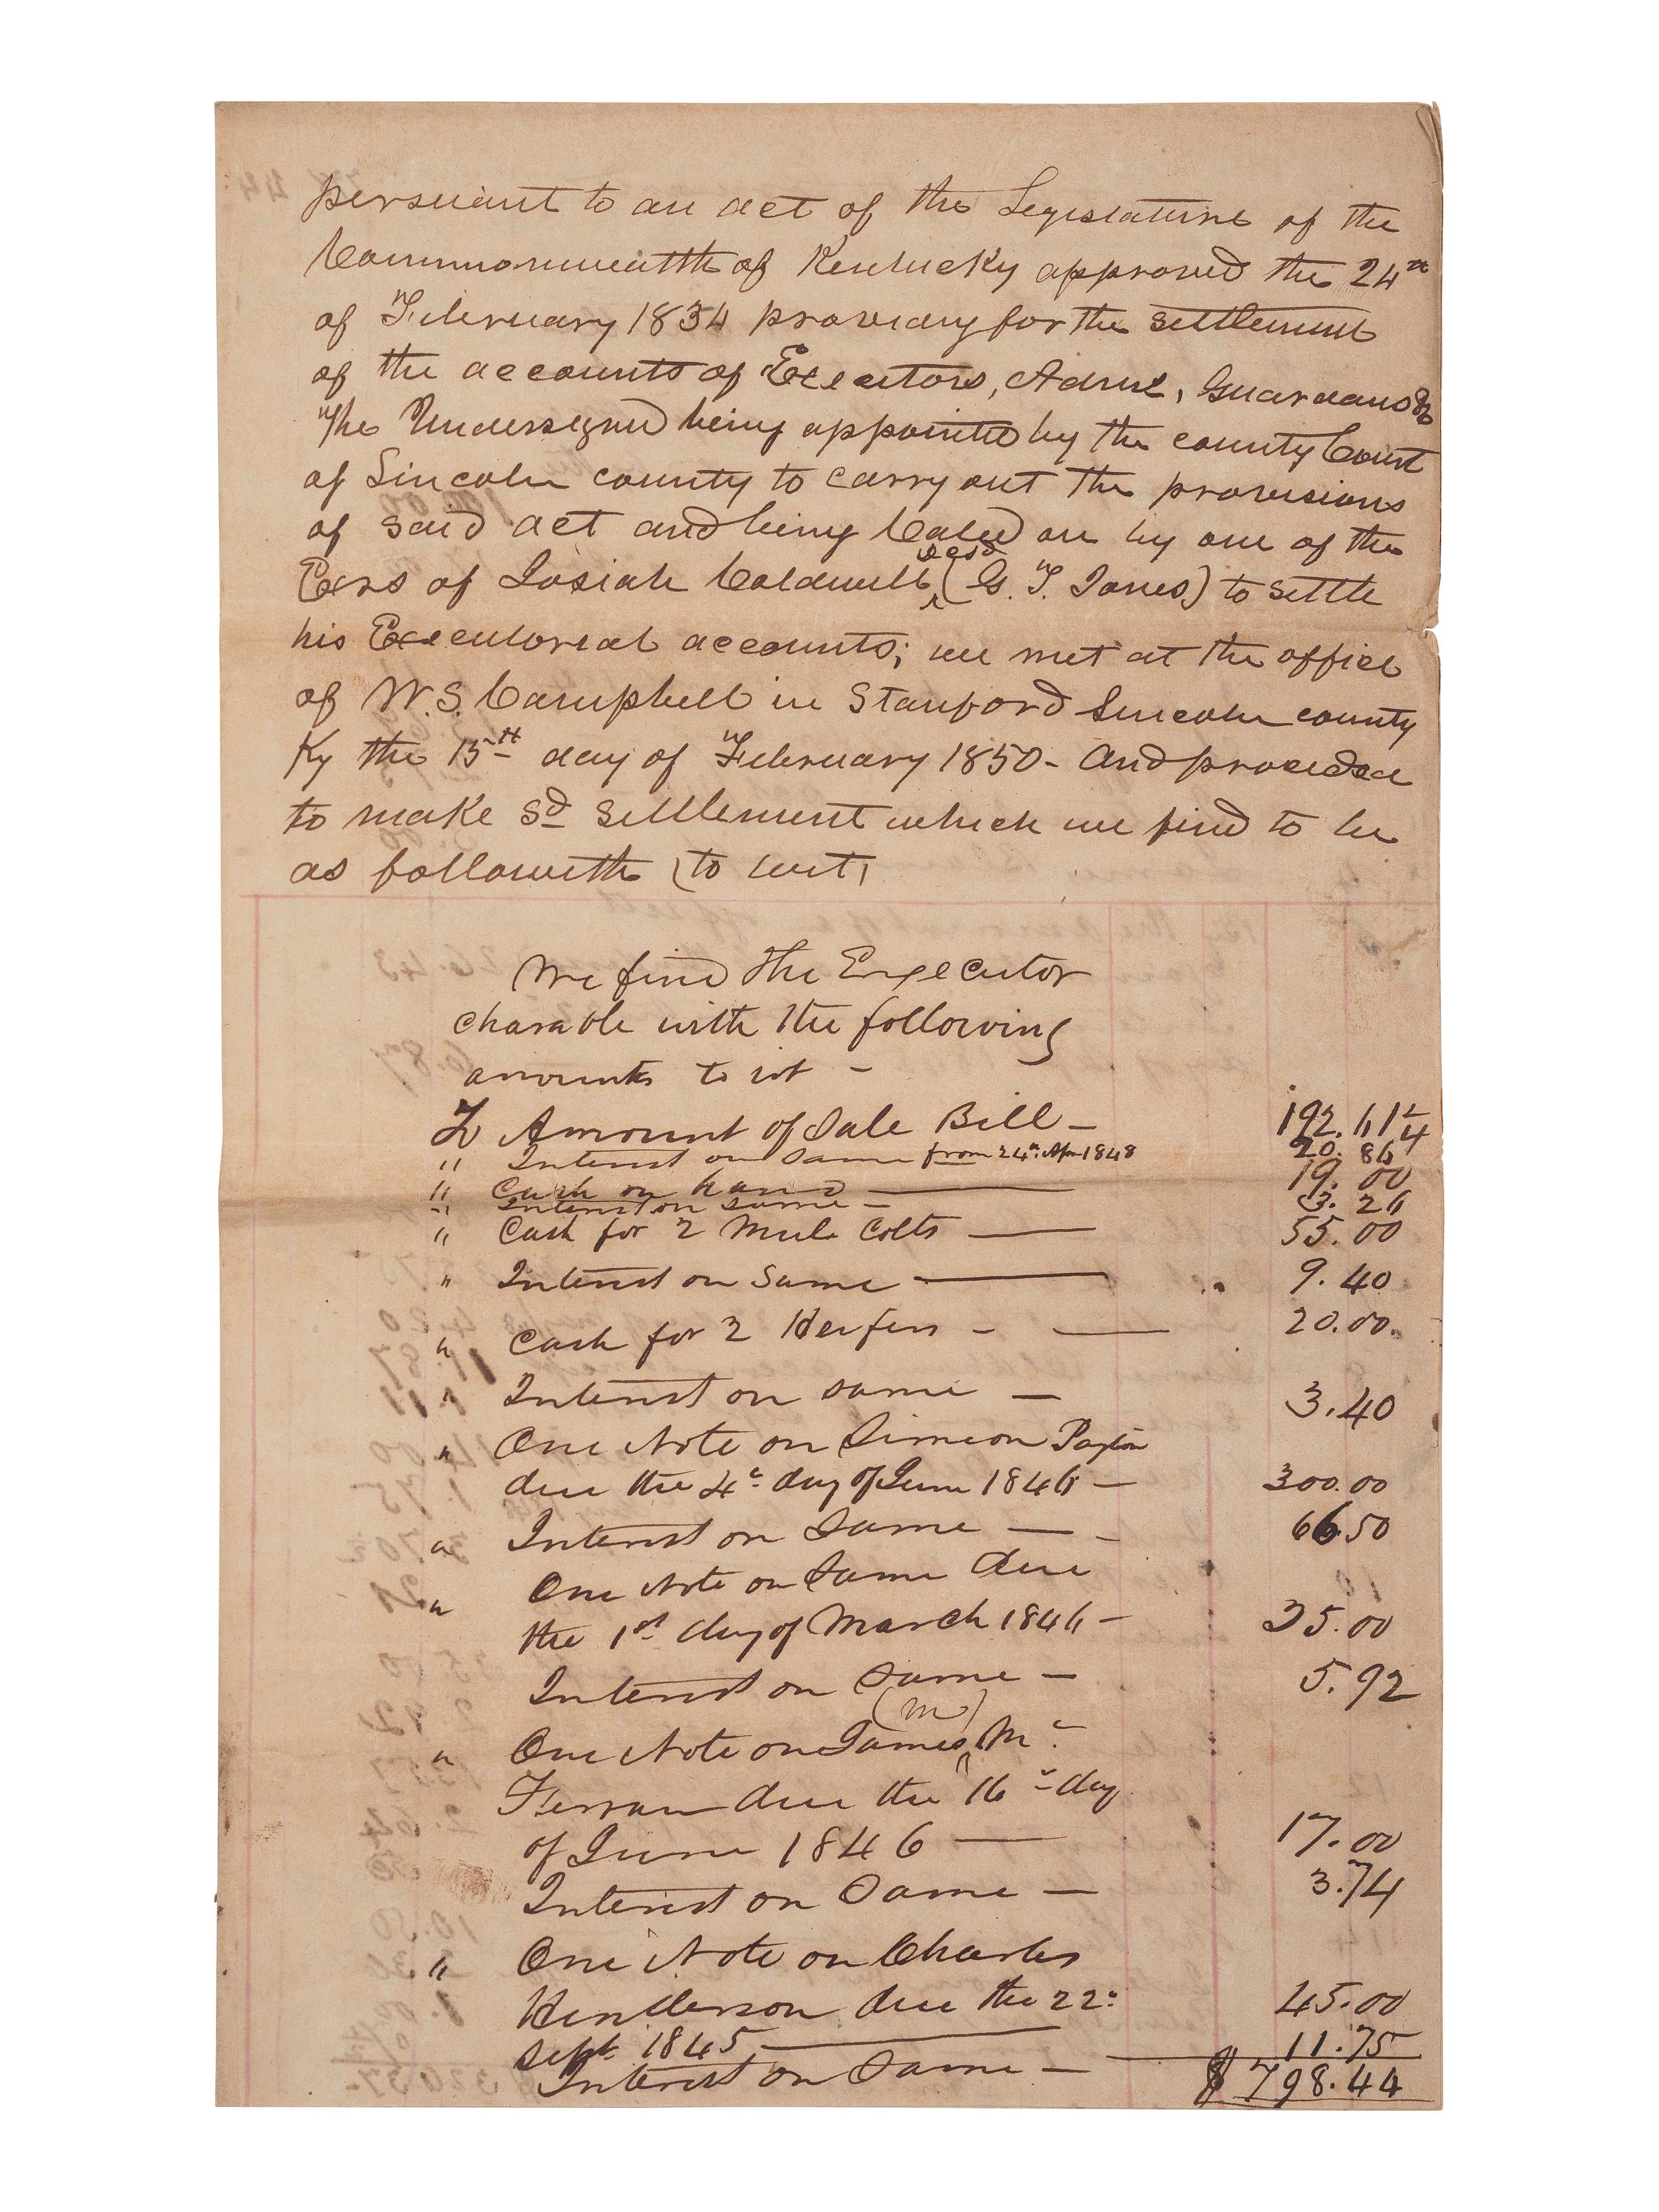 persuant to an act of the Legislature of the
Commonwealth of Kentucky approved the 24th
of February 1834 providing for the settlement
of the accounts of Executors, Admrs, Guardeans &c
The Undersigned being appointed by the county Court
of Lincoln county to carry out the provisions
of said act and being Called on by one of the
Exrs of Josiah Caldwell decd (G. T. Jones) to settle
his Executoreal accounts; we met at the office
of W. S. Campbell in Stanford Lincoln county
Ky the 15th day of February 1850 - And proceded
to make sd settlement which we find to be
as followeth (to wit,
We find the Executor
charable with the following
amounts to wit -
To Amount of Sale Bill - 192.61 1/4
" Interest on same from 24th Apr 1848 20.86
" Cash on hand 19.00
" Interest on same - 3.26
" Cash for 2 Mule Colts 55.00
" Interest on Same 9.40
" Cash for 2 Heifers - 20.00
" Interest on same - 3.40
" One Note on Simeon Payton
due the 4th day of June 1846 - 300.00
" Interest on Same - 66.50
" One Note on Same due
the 1st day of March 1846 - 25.00
Interest on Same - 5.92
" One Note on James (M) Mc
Ferran due the 16th day
of June 1846 17.00
Interest on Same - 3.74
" One Note on Charles
Henderson due the 22d 45.00
Sept. 1845
Interest on Same - 11.75
$798.44